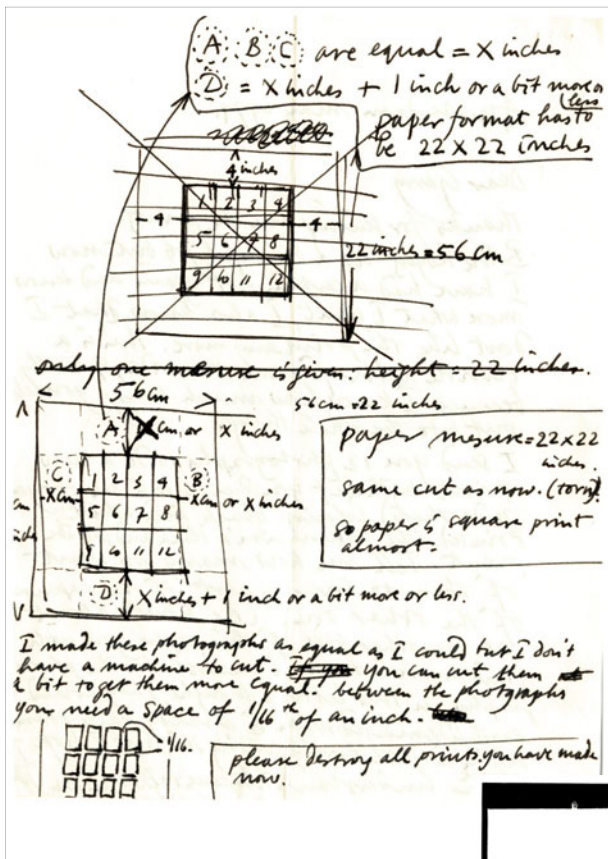 A B C are equal = X inches
D = X inches + 1 inch or a bit more or less
paper format has to
be 22 X 22 inches
4 inches
1 2 3 4
4 5 6 7 8 4
9 10 11 12
22 inches = 56 cm
only one mesure is given: height = 22 inches.
56 cm
56 cm = 22 inches
A X cm or X inches
C B
1 2 3 4
X cm 5 6 7 8 X cm or X inches
9 10 11 12
D X inches + 1 inch or a bit more or less.
paper mesure = 22 x 22
inches.
same cut as now. (torn).
so paper is square print
almost.
I made these photographs as equal as I could but I don't
have a machine to cut. If you you can cut them
a bit to get them more equal. between the photgraphs
your need a space of 1/16th of an inch.
1/16.
please destroy all prints you have made
now.